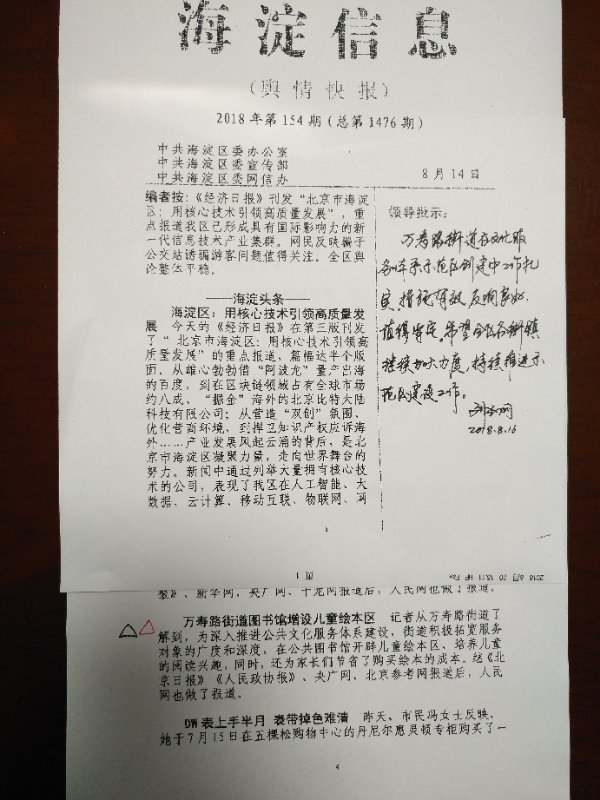 海淀信息
（舆情快报）
2018年第154期（总第1476期）
中共海淀区委办公室
中共海淀区委宣传部
中共海淀区委网信办
8月14日
编者按：《经济日报》刊发“北京市海淀
区：用核心技术引领高质量发展”，重
点报道我区已形成具有国际影响力的新
一代信息技术产业集群。网民反映骗子
公交站诱骗游客问题值得关注。全区舆
论整体平稳。
——海淀头条——
海淀区：用核心技术引领高质量发
展 今天的《经济日报》在第三版刊发
了“北京市海淀区：用核心技术引领高
质量发展”的重点报道，篇幅达半个版
面。从雄心勃勃借“阿波龙”量产出海
的百度，到在区块链领域占有全球市场
约八成、“掘金”海外的北京比特大陆
科技有限公司；从营造“双创”氛围、
优化营商环境，到捍卫知识产权应诉海
外……产业发展风起云涌的背后，是北
京市海淀区凝聚力量，走向世界舞台的
努力。新闻中通过列举大量拥有核心技
术的公司，表现了我区在人工智能、大
数据、云计算、移动互联、物联网、网
领导批示：
万寿路街道在文化服
务体系示范区创建中工作扎
实，措施有效，反响良好，
值得肯定。希望全区各街镇
继续加大力度，持续推进示
范区建设工作。
2018.8.16
1 页
报》、新华网、央广网、千龙网报道后，人民网也做了报道。
万寿路街道图书馆增设儿童绘本区 记者从万寿路街道了
解到，为深入推进公共文化服务体系建设，街道积极拓宽服务
对象的广度和深度，在公共图书馆开辟儿童绘本区，培养儿童
的阅读兴趣，同时，还为家长们节省了购买绘本的成本。经《北
京日报》《人民政协报》、央广网、北京参考网报道后，人民
网也做了报道。
DW表上手半月 表带掉色难清 昨天，市民冯女士反映，
她于7月15日在五棵松购物中心的丹尼尔惠灵顿专柜购买了一
4